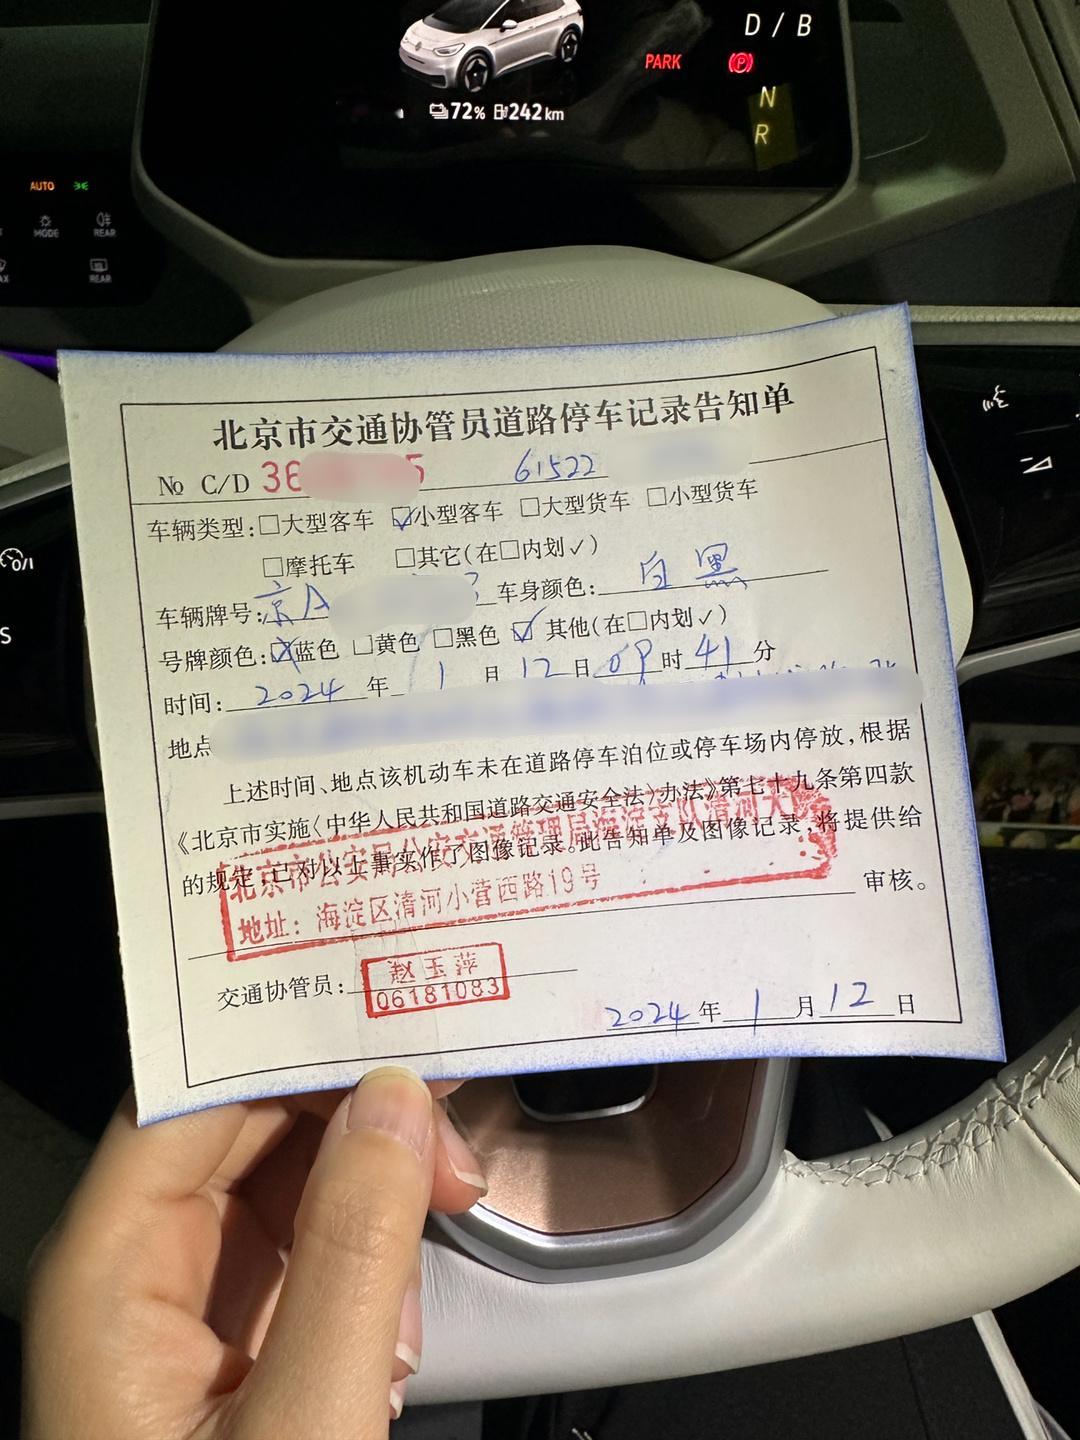 D / B
PARK
N
72% 242km
R
AUTO
MODE
REAR
REAR
北京市交通协管员道路停车记录告知单
№ C/D 36 5 61522
车辆类型:□大型客车 ☑小型客车 □大型货车 □小型货车
□摩托车 □其它(在□内划✓)
车辆牌号:京A 车身颜色: 白 黑
号牌颜色:□蓝色 □黄色 □黑色 ☑ 其他(在□内划✓)
时间: 2024 年 1 月 12 日 09 时 41 分
地点
上述时间、地点该机动车未在道路停车泊位或停车场内停放,根据
《北京市实施〈中华人民共和国道路交通安全法〉办法》第七十九条第四款
的规定,已对以上事实作了图像记录。此告知单及图像记录,将提供给
北京市公安局公安交通管理局海淀支队清河大队
地址: 海淀区清河小营西路19号
审核。
交通协管员: 赵玉萍
06181083
2024 年 1 月 12 日